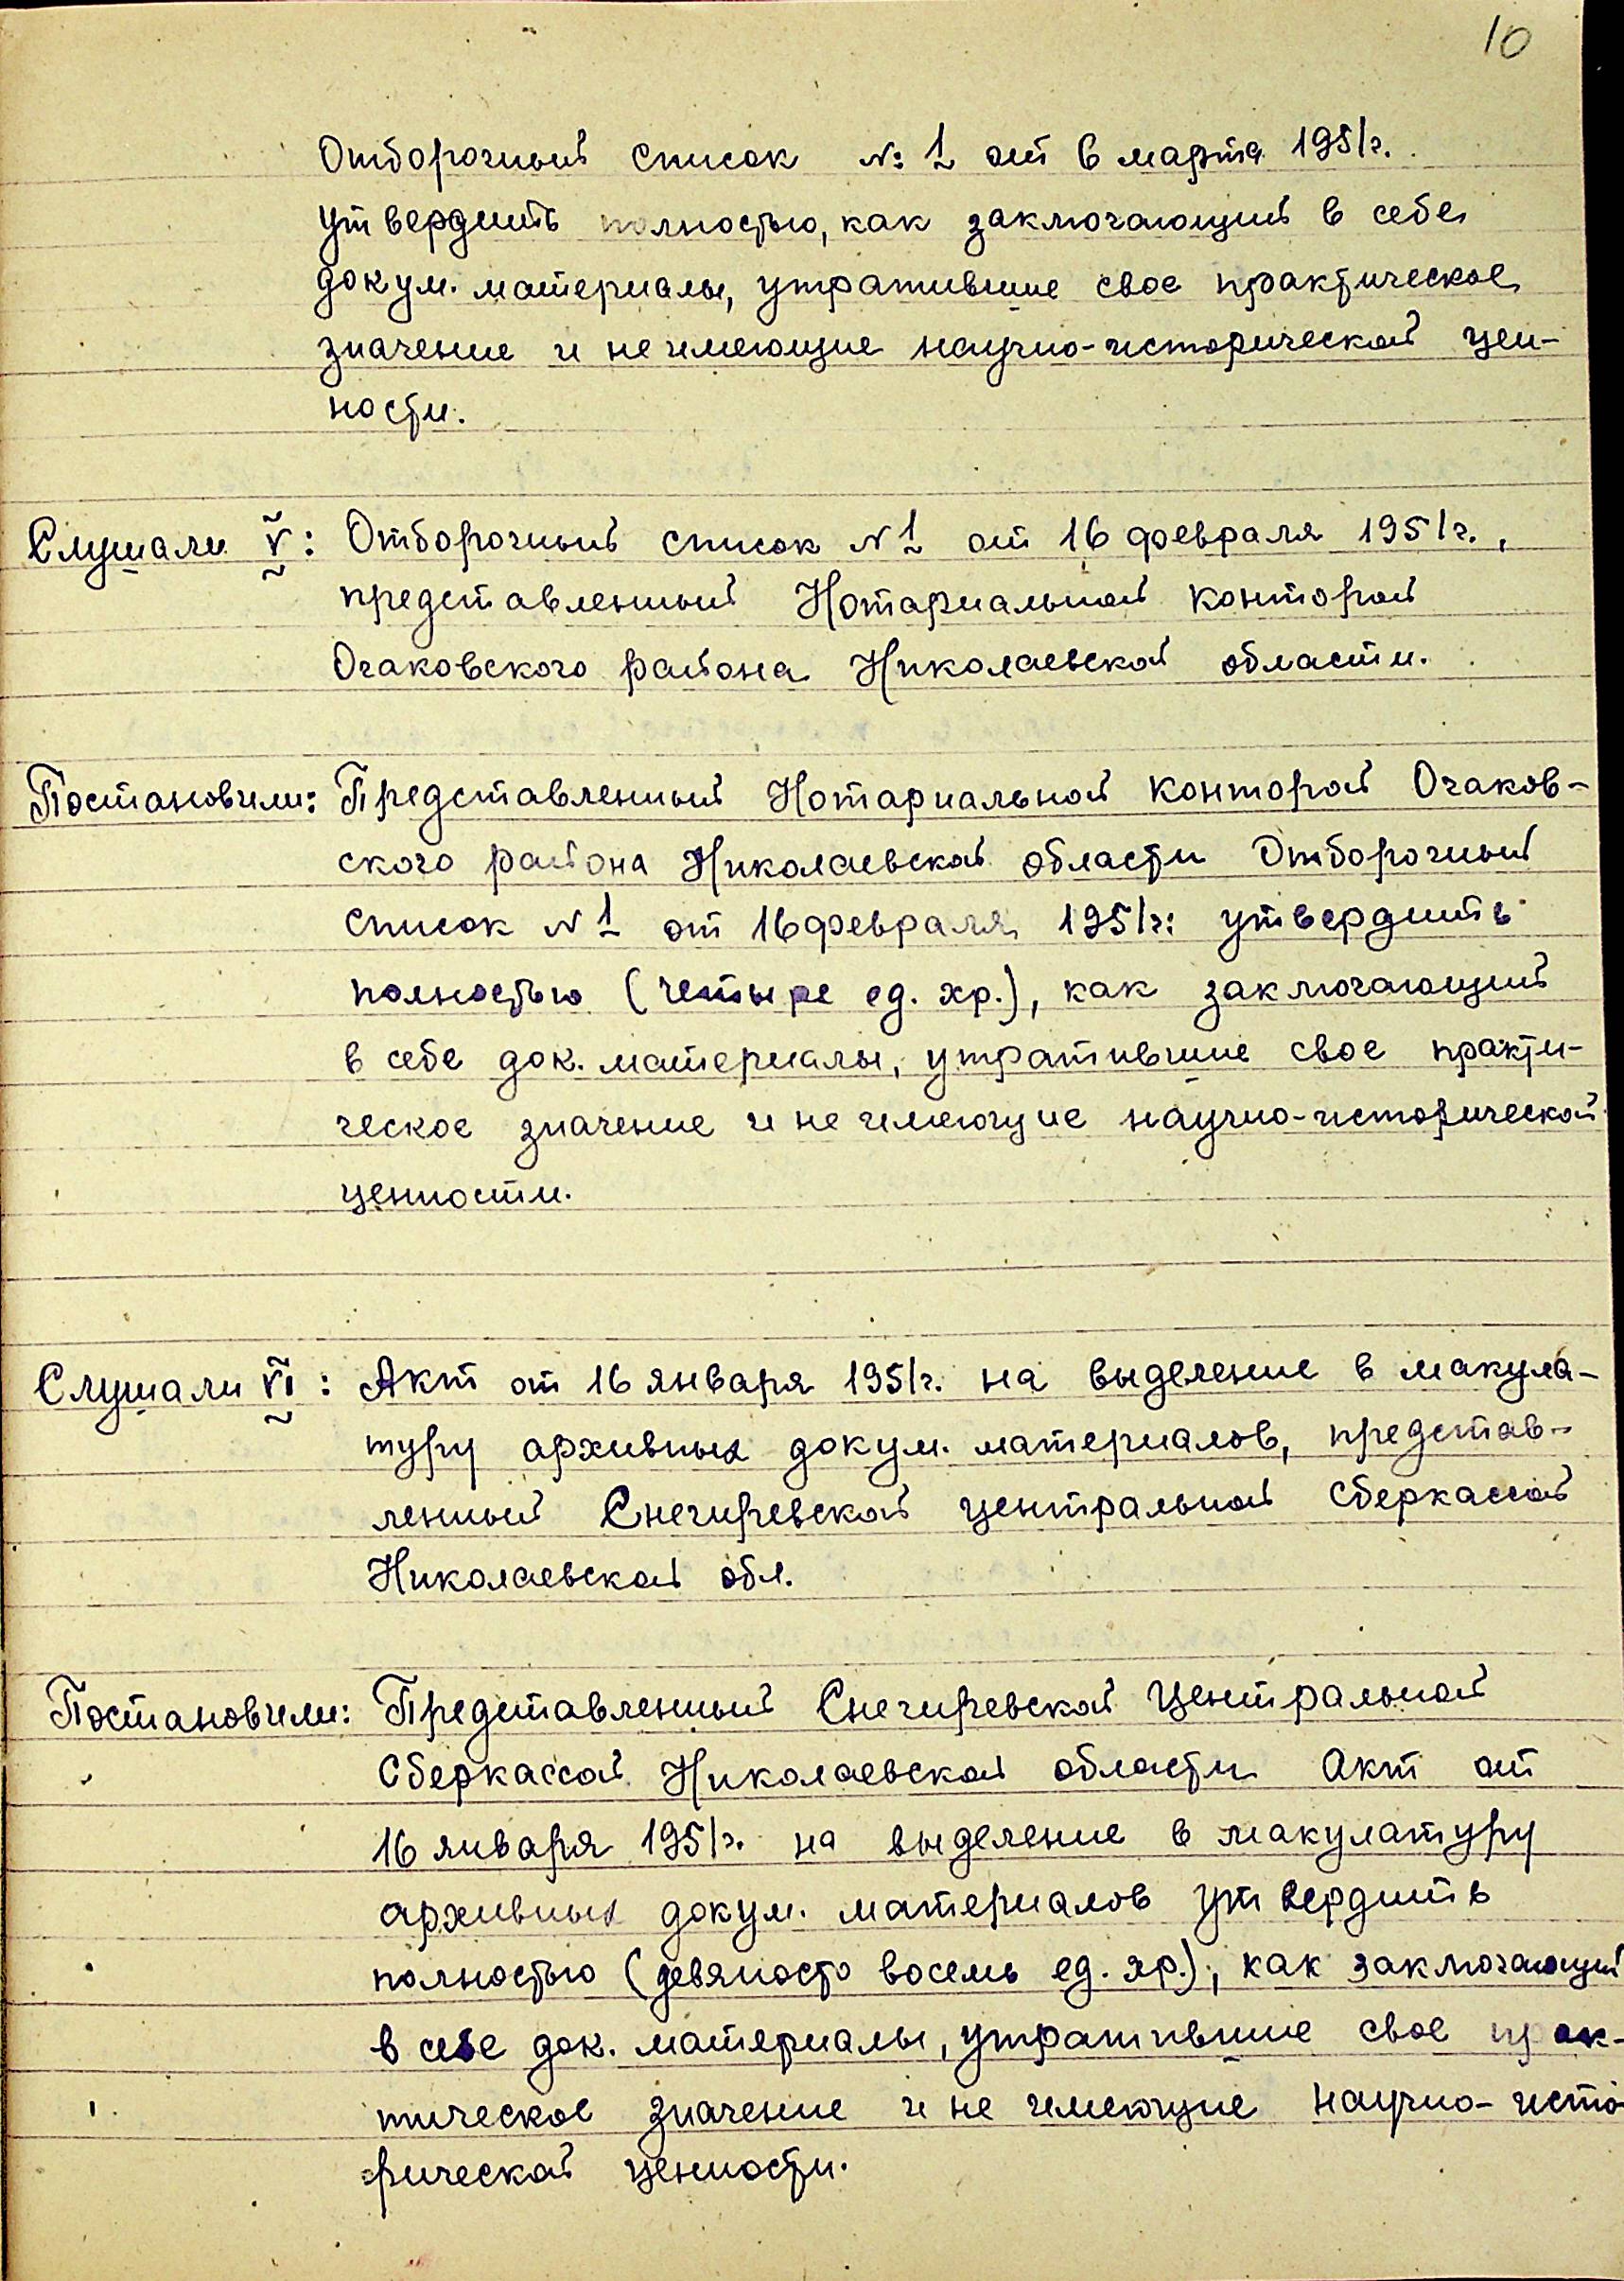 10
Отборочный список №: 1 от 6 марта 1951г.
утвердить полностью, как заключающий в себе
докум. материалы, утратившие свое практическое
значение и не имеющие научно-исторической цен-
ности.
Слушали V: Отборочный список N 1 от 16 февраля 1951г.,
представленный Нотариальной конторой
Очаковского района Николаевской области.
Постановили: Представленный Нотариальной конторой Очаков-
ского района Николаевской области Отборочный
список N 1 от 16 февраля 1951г: утвердить
полностью (четыре ед. хр.), как заключающий
в себе док. материалы, утратившие свое практи-
ческое значение и не имеющие научно-исторической
ценности.
Слушали VI: Акт от 16 января 1951г. на выделение в макула-
туру архивных докум. материалов, представ-
ленный Снегиревской центральной сберкассой
Николаевской обл.
Постановили: Представленный Снегиревской Центральной
Сберкассой Николаевской области Акт от
16 января 1951г. на выделение в макулатуру
архивных докум. материалов утвердить
полностью (девяносто восемь ед. хр.), как заключающий
в себе док. материалы, утратившие свое прак-
тическое значение и не имеющие научно-исто
рической ценности.